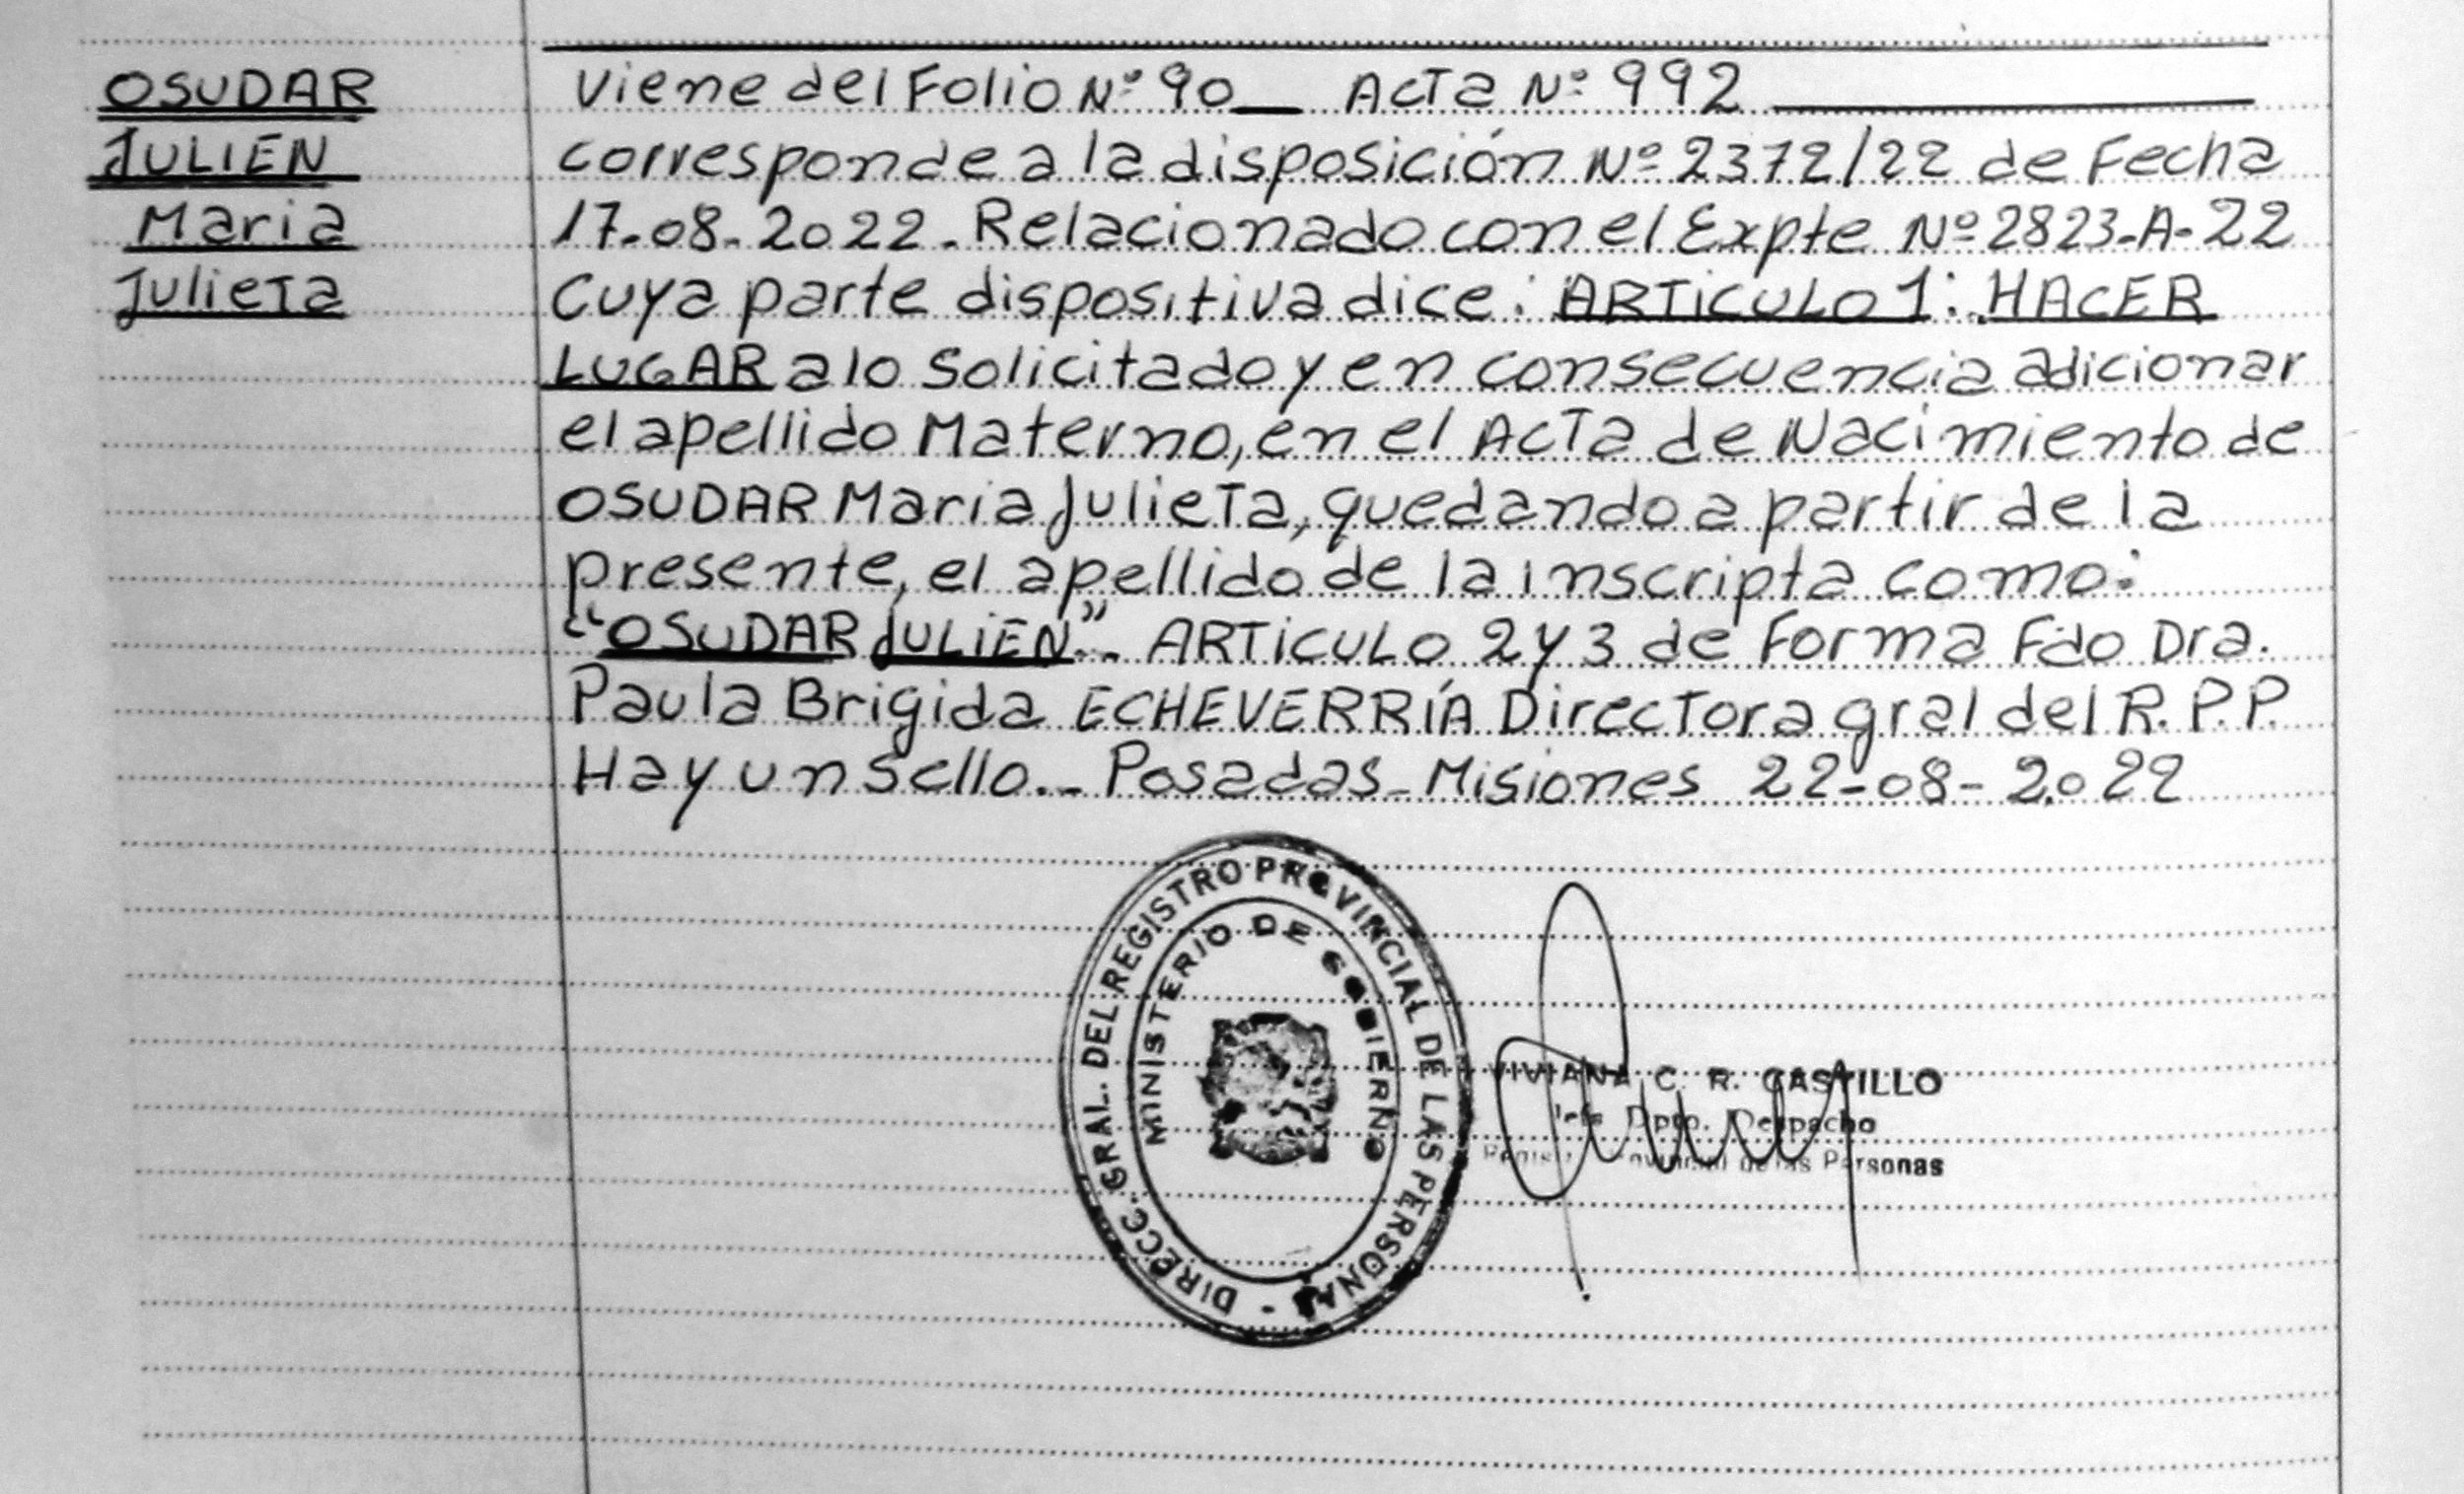 OSUDAR
JULIEN
Maria
Julieta
Viene del Folio Nº 90 — Acta Nº 992
corresponde a la disposición Nº 2372/22 de Fecha
17-08-2022. Relacionado con el Expte Nº 2823-A-22
Cuya parte dispositiva dice: ARTICULO 1: HACER
LUGAR a lo solicitado y en consecuencia adicionar
el apellido Materno, en el Acta de Nacimiento de
OSUDAR Maria Julieta, quedando a partir de la
presente, el apellido de la inscripta como:
"OSUDAR JULIEN".- ARTICULO, 2 y 3 de Forma Fdo Dra.
Paula Brigida ECHEVERRÍA Directora gral del R.P.P.
Hay un sello.- Posadas-Misiones 22-08-2022
DIRECC. GRAL. DEL REGISTRO PROVINCIAL DE LAS PERSONAS -
MINISTERIO DE GOBIERNO
VIVIANA C. R. CASTILLO
Jefe Dpto. Despacho
Registro Provincial de las Personas